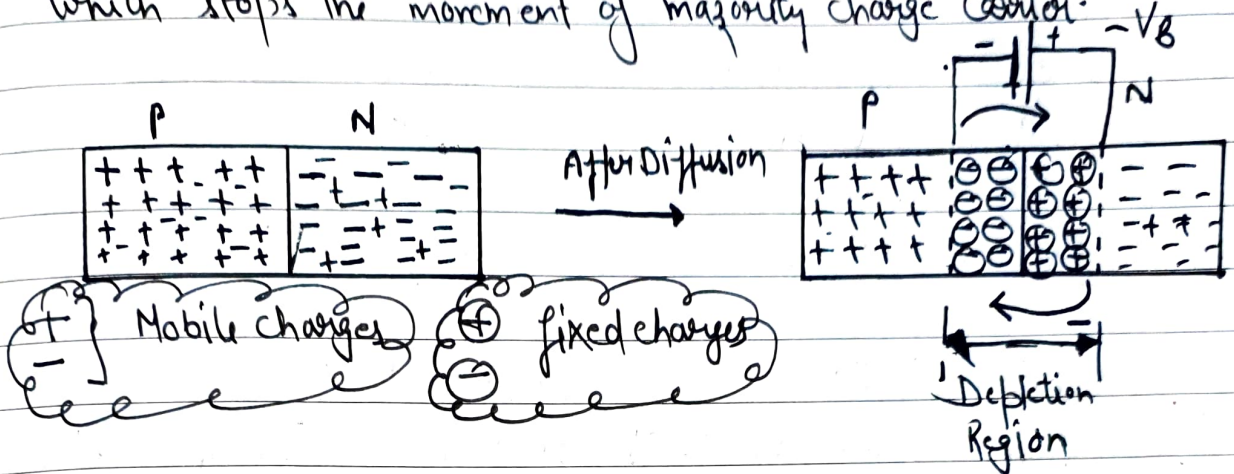 which stops the movement of majority charge carrier.
- + -VB
P N
P N
After Diffusion
+ - } Mobile charges
⊕ ⊖ fixed charges
Depletion
Region